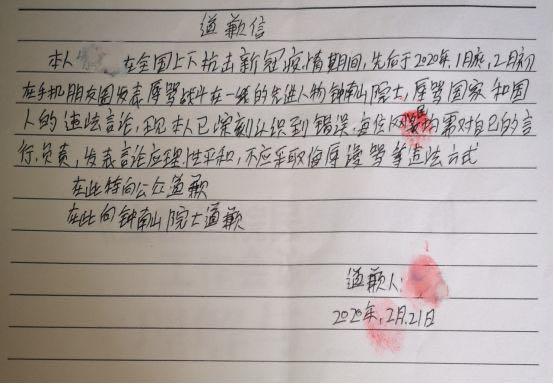 道歉信
本人 在全国上下抗击新冠疫情期间,先后于2020年.1月底,2月初
在手机朋友圈发表辱骂战斗在一线的先进人物钟南山院士,辱骂国家和国
人的违法言论,现本人已深刻认识到错误,每位网民均需对自己的言
行.负责,发表言论应理性平和,不应采取侮辱谩骂等违法方式
在此特向公众道歉
在此向钟南山院士道歉
道歉人:
2020年.2月.21日